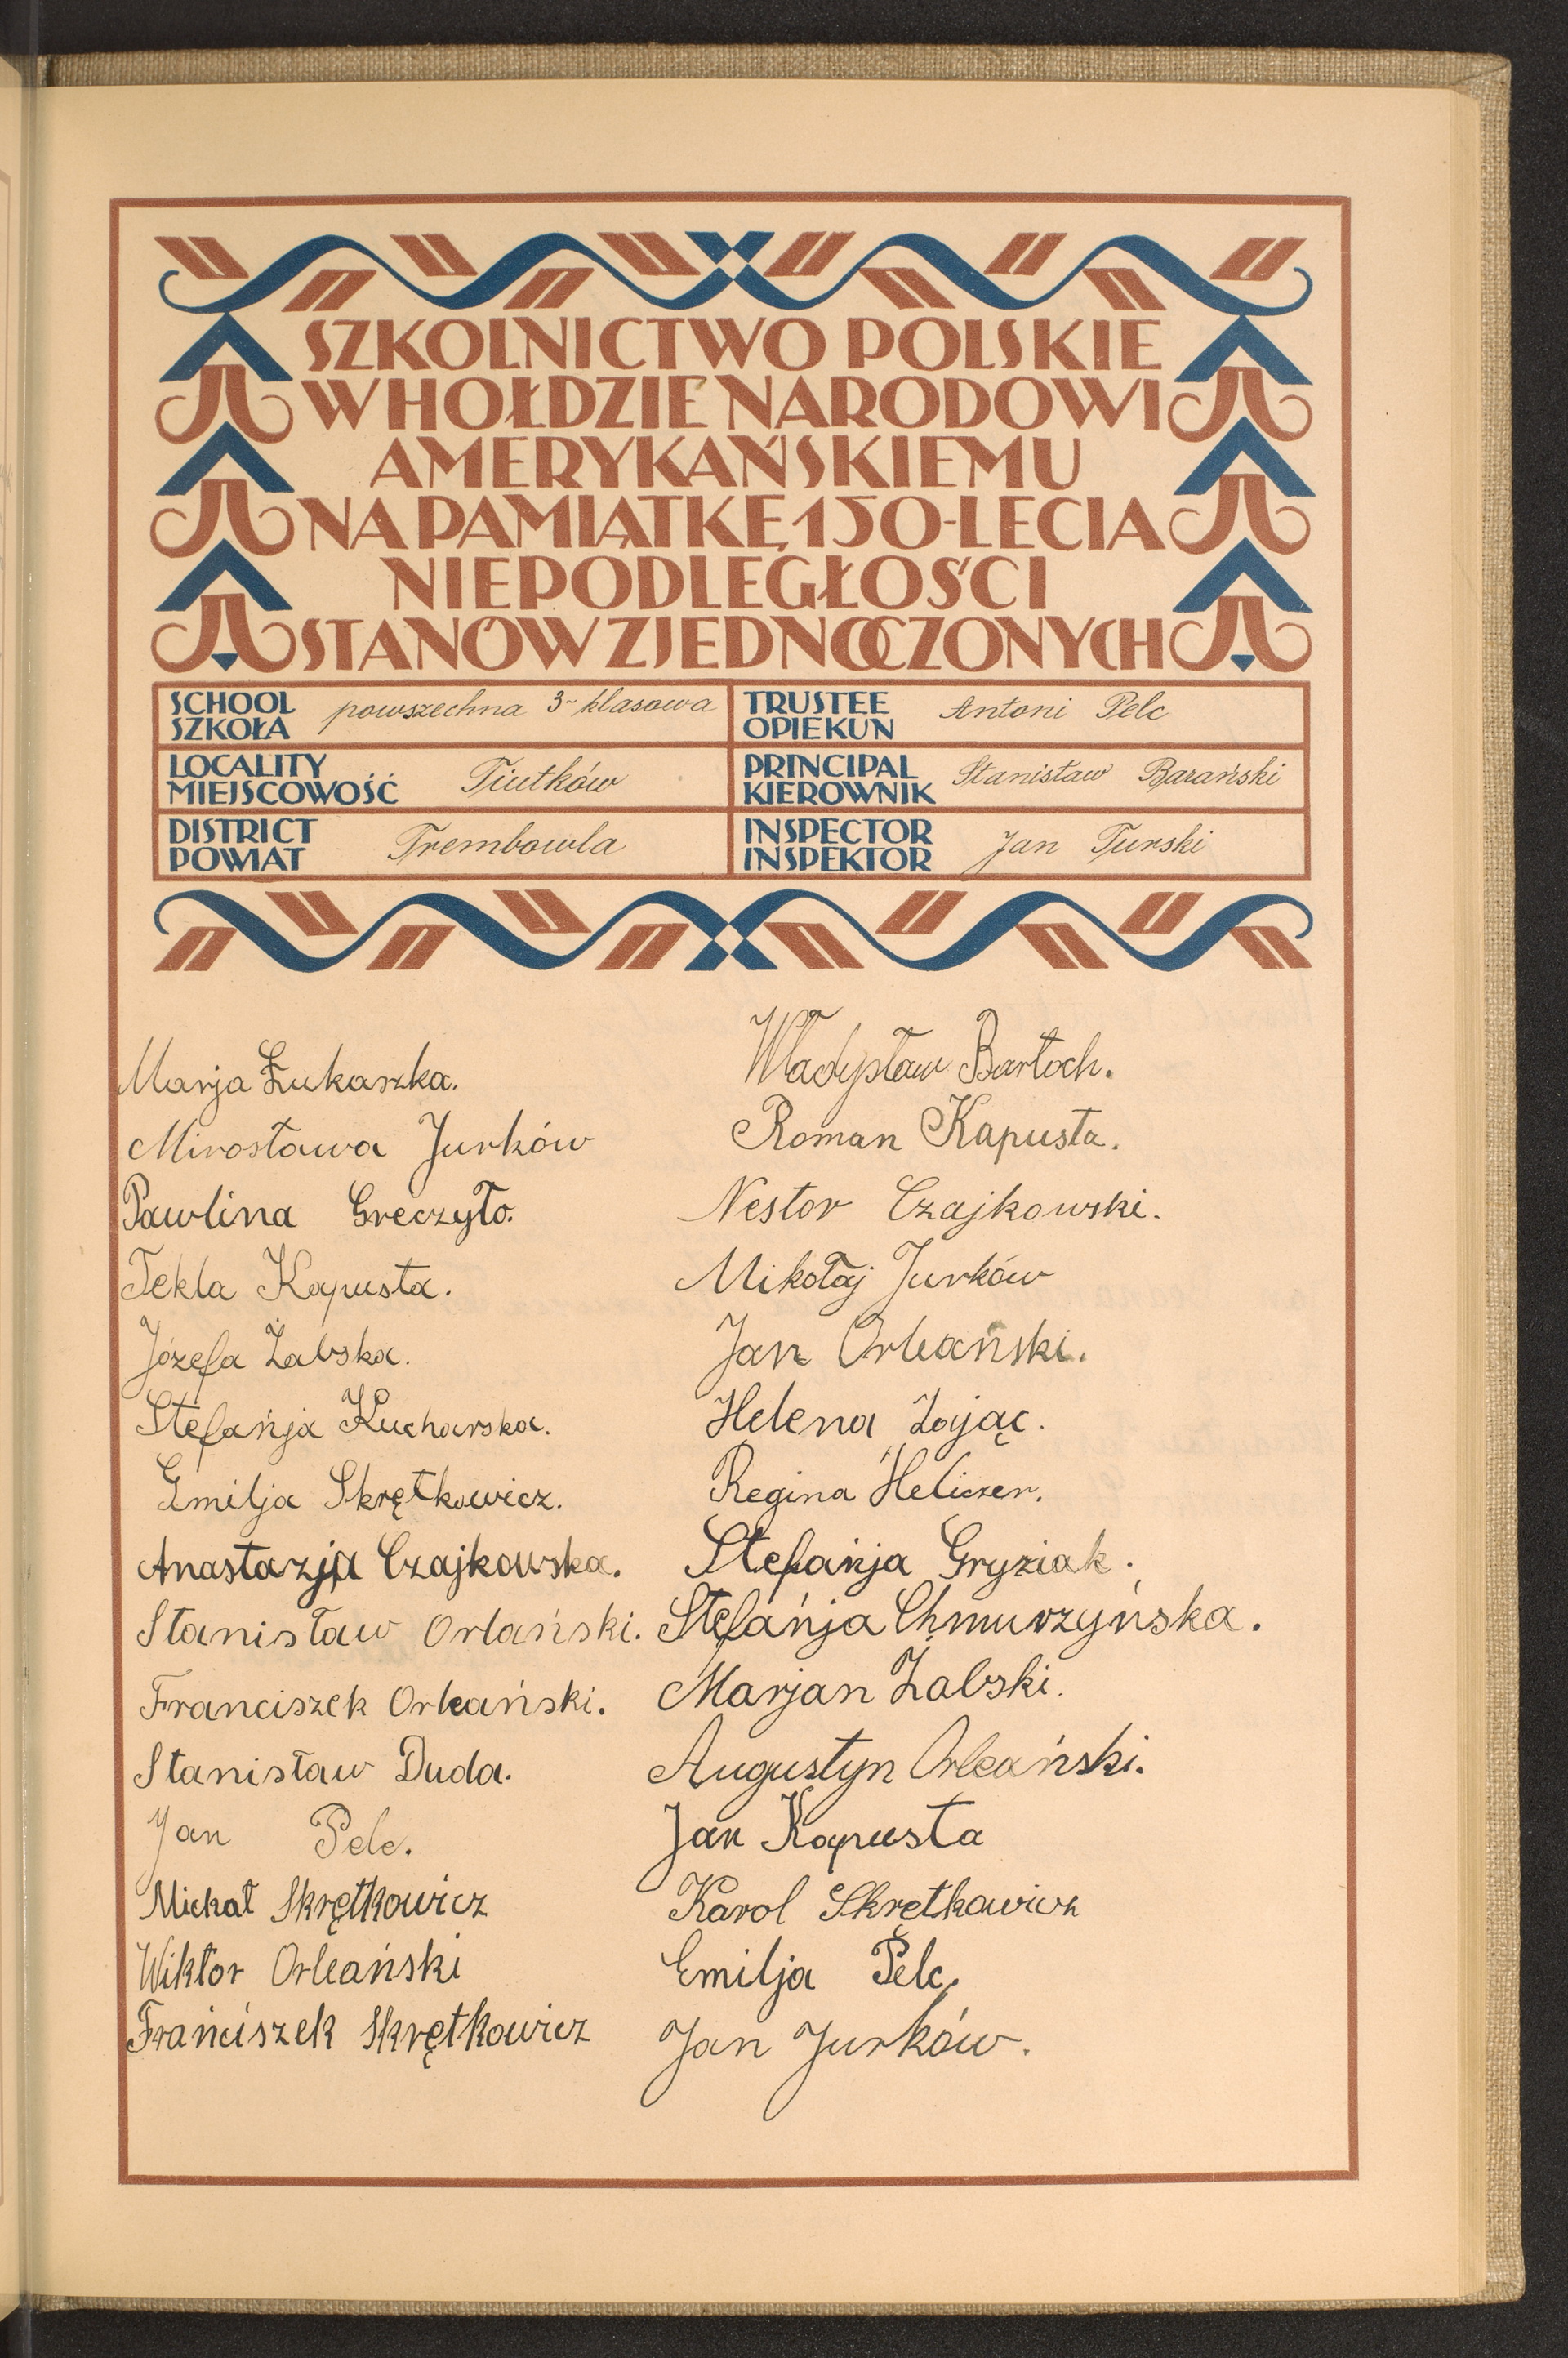 SZKOLNICTWO POLSKIE
W HOŁDZIE NARODOWI
AMERYKAŃSKIEMU
NA PAMIĄTKĘ 150-LECIA
NIEPODLEGŁOŚCI
STANÓW ZJEDNOCZONYCH
SCHOOL
SZKOŁA powszechna 3-klasowa
TRUSTEE
OPIEKUN Antoni Pelc
LOCALITY
MIEJSCOWOŚĆ Tiutków
PRINCIPAL
KIEROWNIK Stanisław Barański
DISTRICT
POWIAT Trembowla
INSPECTOR
INSPEKTOR Jan Turski
Marja Łukaszka.
Mirosława Jurków
Pawlina Greczyło.
Tekla Kapusta.
Józefa Żabska.
Stefańja Kucharska.
Emilja Skrętkowicz.
Anastazja Czajkowska.
Stanisław Orlański.
Franciszek Orleański.
Stanisław Duda.
Jan Pelc.
Michał Skrętkowicz
Wiktor Orleański
Franciszek Skrętkowicz
Władysław Bartoch.
Roman Kapusta.
Nestor Czajkowski.
Mikołaj Jurków
Jan Orleański.
Helena Zając.
Regina Heliczer.
Stefańja Gryziak.
Stefańja Chmurzyńska.
Marjan Żabski.
Augustyn Orleański.
Jan Kapusta
Karol Skrętkowicz
Emilja Pelc.
Jan Jurków.